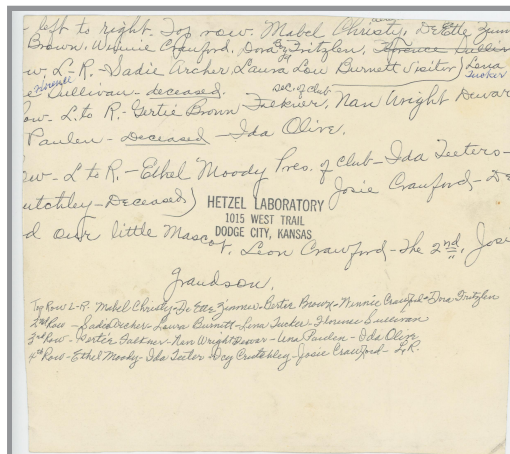 - left to right. Top row. Mabel Christy, DeEtte Zimm
Brown. Winnie Crawford. Dora Fritzlen, Florence Sullivan
w. L.R. - Sadie Archer, Laura Lou Burnett visitor) Lena Tucker
Florence
e Sullivan - deceased.
sec. of club
ow. L. to R. - Gertie Brown Falkner, Nan Wright Dewar
Pauden - Deceased - Ida Olive.
ow - L to R. - Ethel Moody Pres. of club - Ida Teeters -
utchley - Deceased) Josie Crawford - De
HETZEL LABORATORY
1015 WEST TRAIL
DODGE CITY, KANSAS
d our little Mascot, Leon Crawford - the 2nd, Josie
Grandson.
Top Row L-R. Mabel Christy - De Ette Zimmer - Bertie Brown - Winnie Crawford - Dora Fritzlen
2nd Row - Sadie Archer - Laura Burnett - Lena Tucker - Florence Sullivan
3rd Row - Gertie Falkner - Nan Wright Dewar - Una Pauden - Ida Olive
4th Row - Ethel Moody - Ida Teeter - Dcy Crutchley - Josie Crawford - L.R.